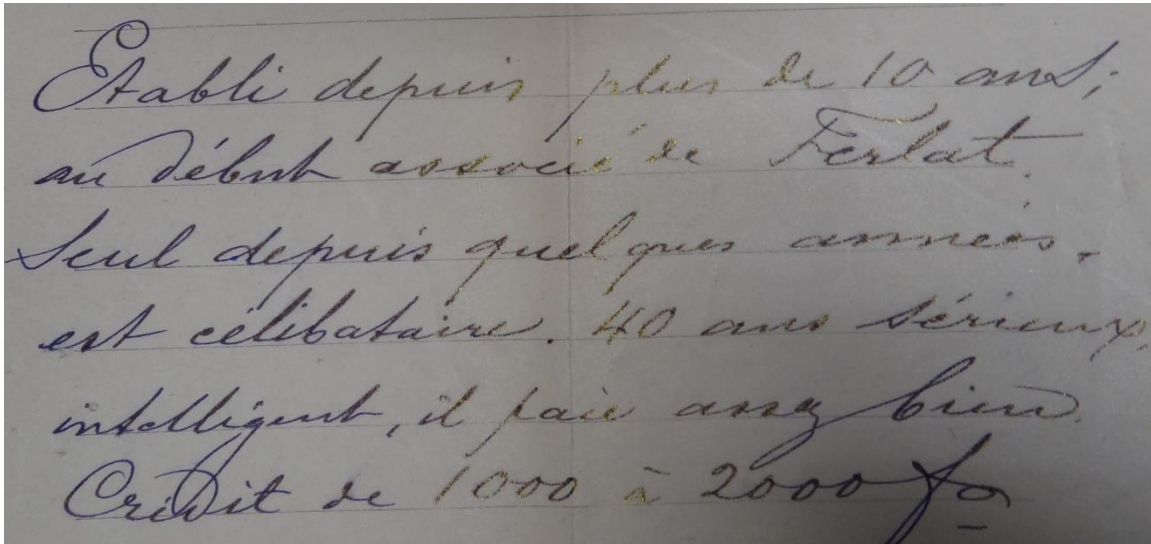 Etabli depuis plus de 10 ans;
au début associé de Ferlat.
Seul depuis quelques années.
est célibataire. 40 ans sérieux,
intelligent, il paie assez bien.
Crédit de 1000 à 2000 fs